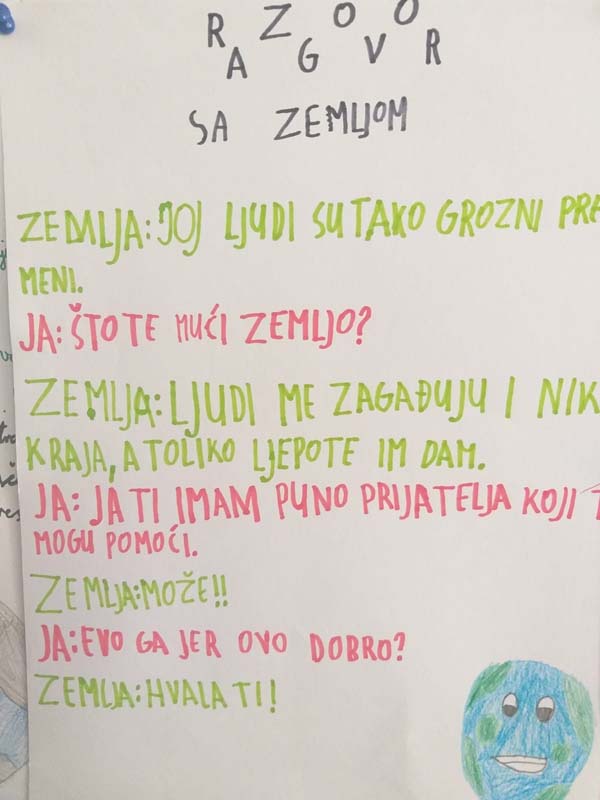 RAZGOVOR
SA ZEMLJOM
ZEMLJA: JOJ LJUDI SU TAKO GROZNI PRE
MENI.
JA: ŠTO TE MUĆI ZEMLJO?
ZEMLJA: LJUDI ME ZAGAĐUJU I NIK
KRAJA, A TOLIKO LJEPOTE IM DAM.
JA: JA TI IMAM PUNO PRIJATELJA KOJI T
MOGU POMOĆI.
ZEMLJA: MOŽE!!
JA: EVO GA JER OVO DOBRO?
ZEMLJA: HVALA TI!